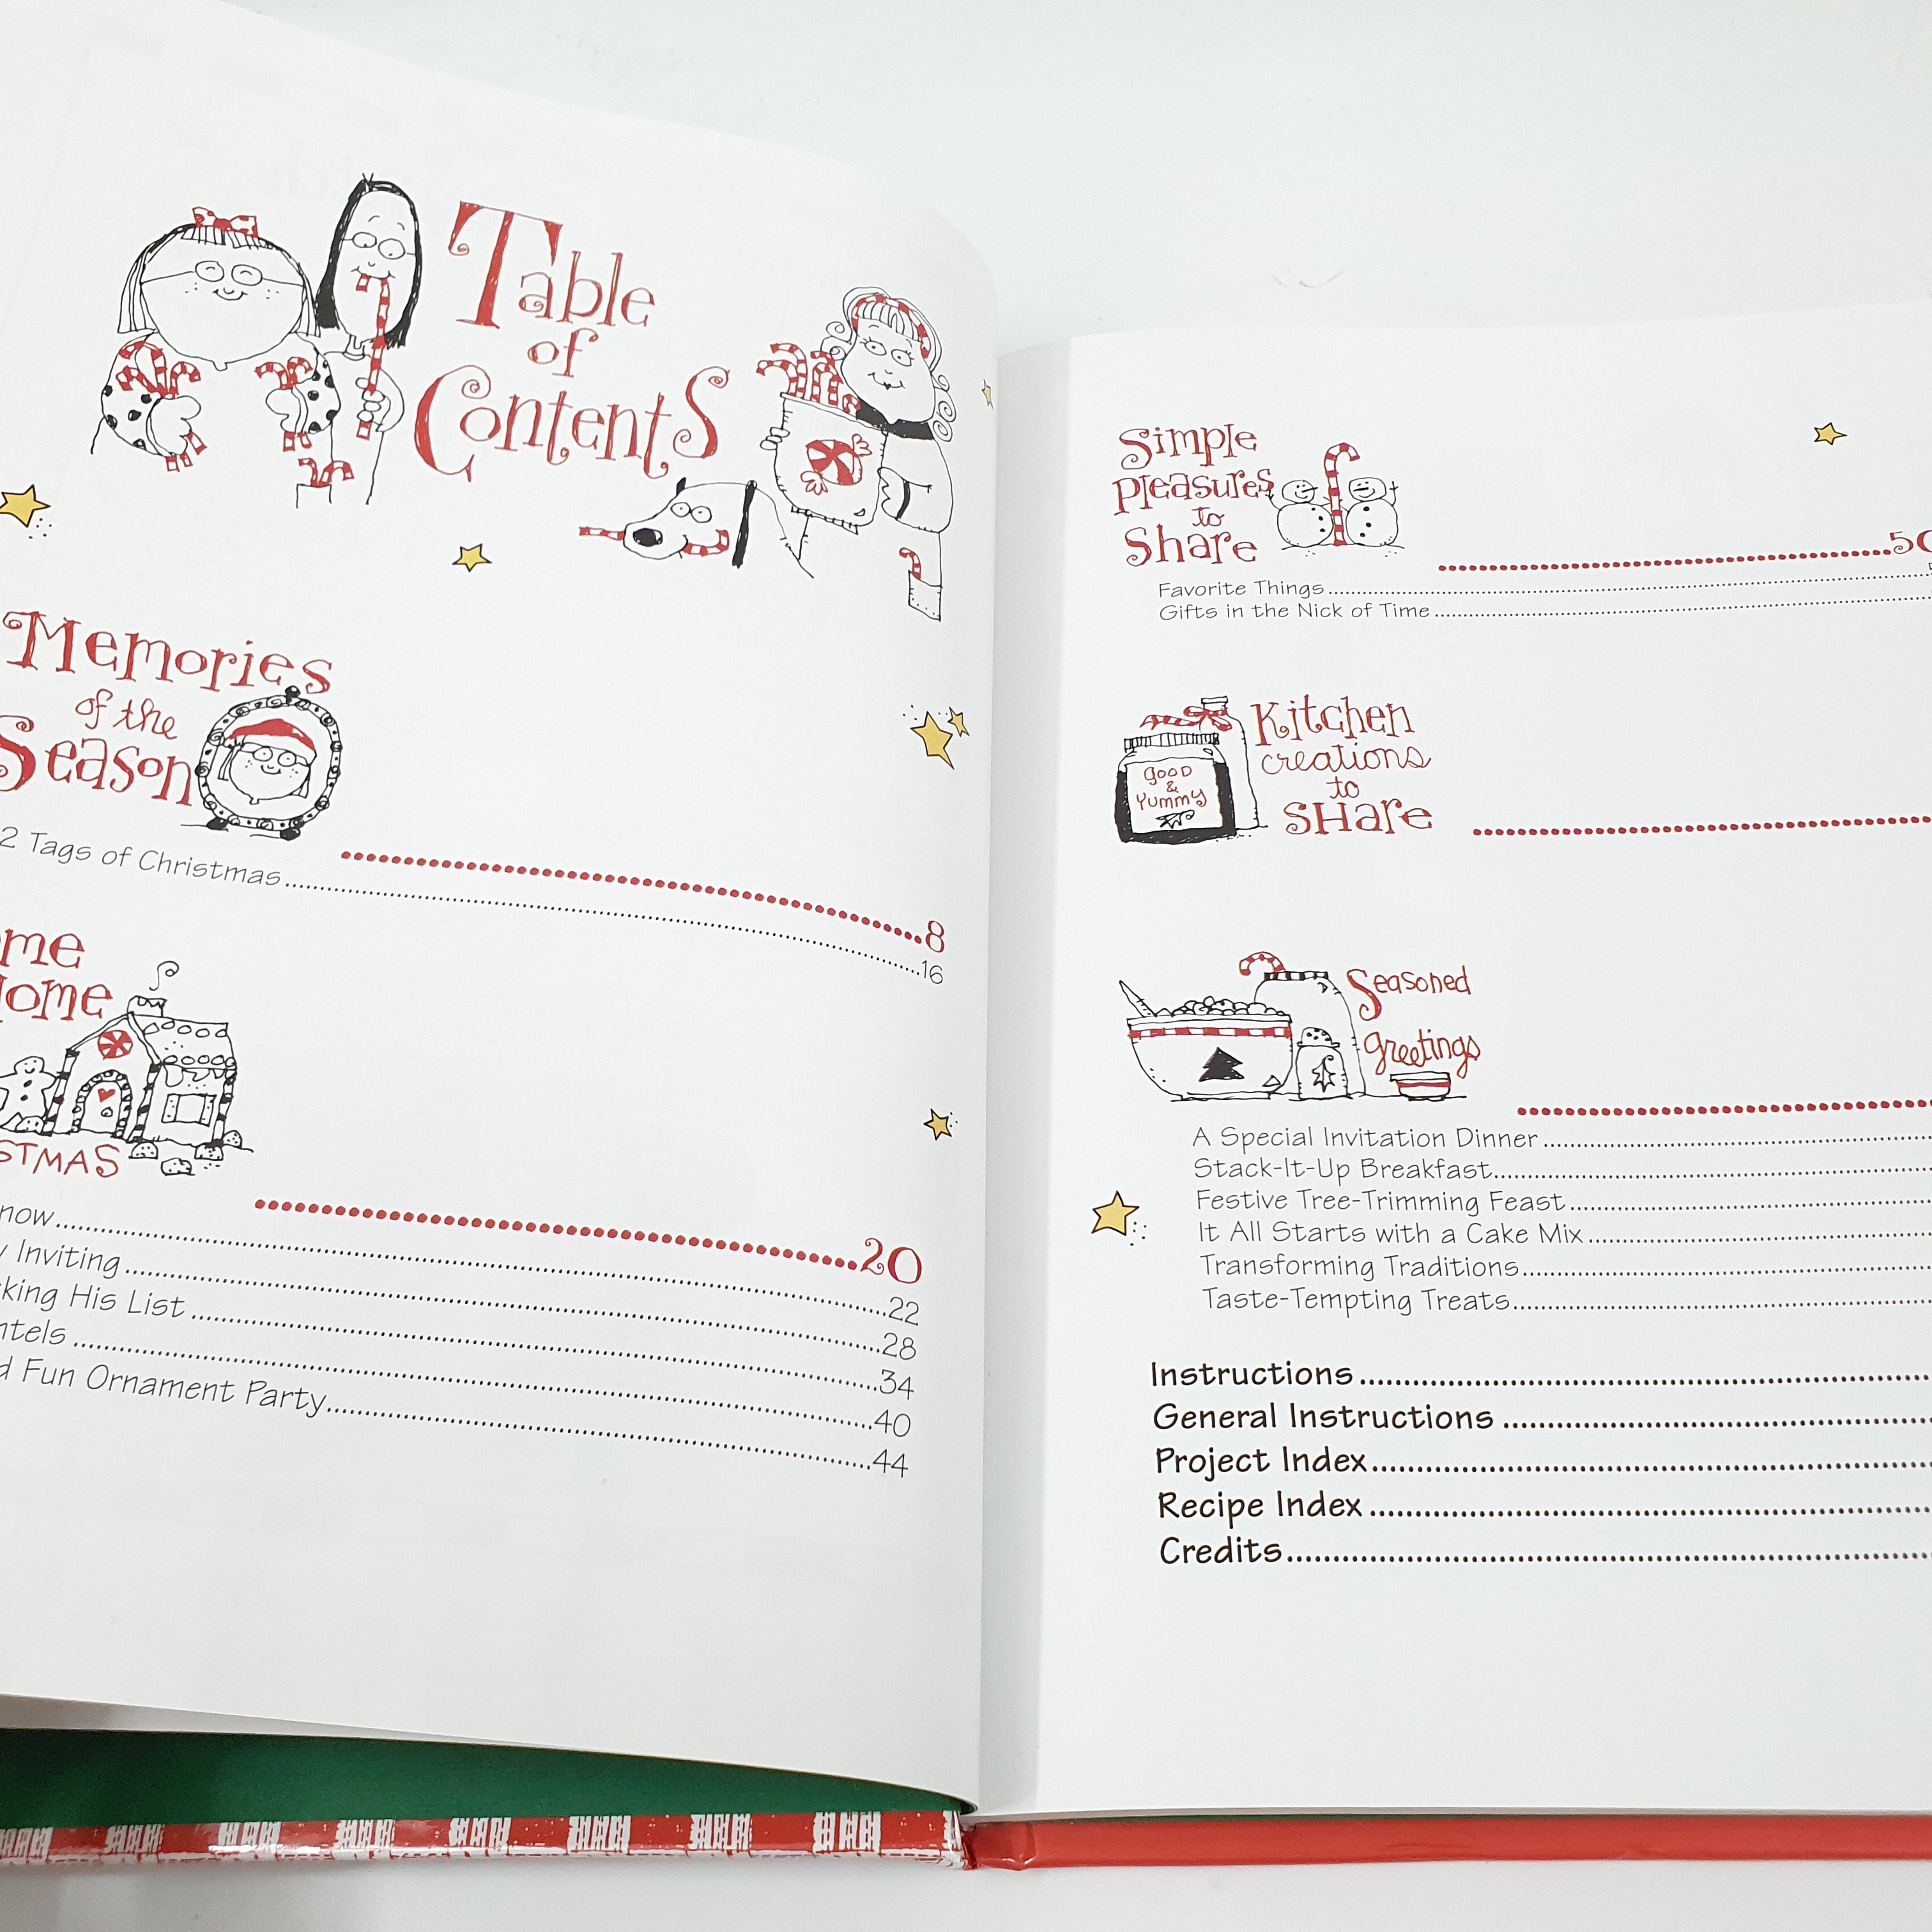 Table
of
Contents
Memories
of the
Season
8
2 Tags of Christmas 16
20
22
Inviting 28
His List 34
40
Fun Ornament Party 44
Simple
Pleasures
to
Share
Favorite Things
Gifts in the Nick of Time
GOOD
&
YUMMY
Kitchen
creations
to
SHare
Seasoned
Greetings
A Special Invitation Dinner
Stack-It-Up Breakfast
Festive Tree-Trimming Feast
It All Starts with a Cake Mix
Transforming Traditions
Taste-Tempting Treats
Instructions
General Instructions
Project Index
Recipe Index
Credits